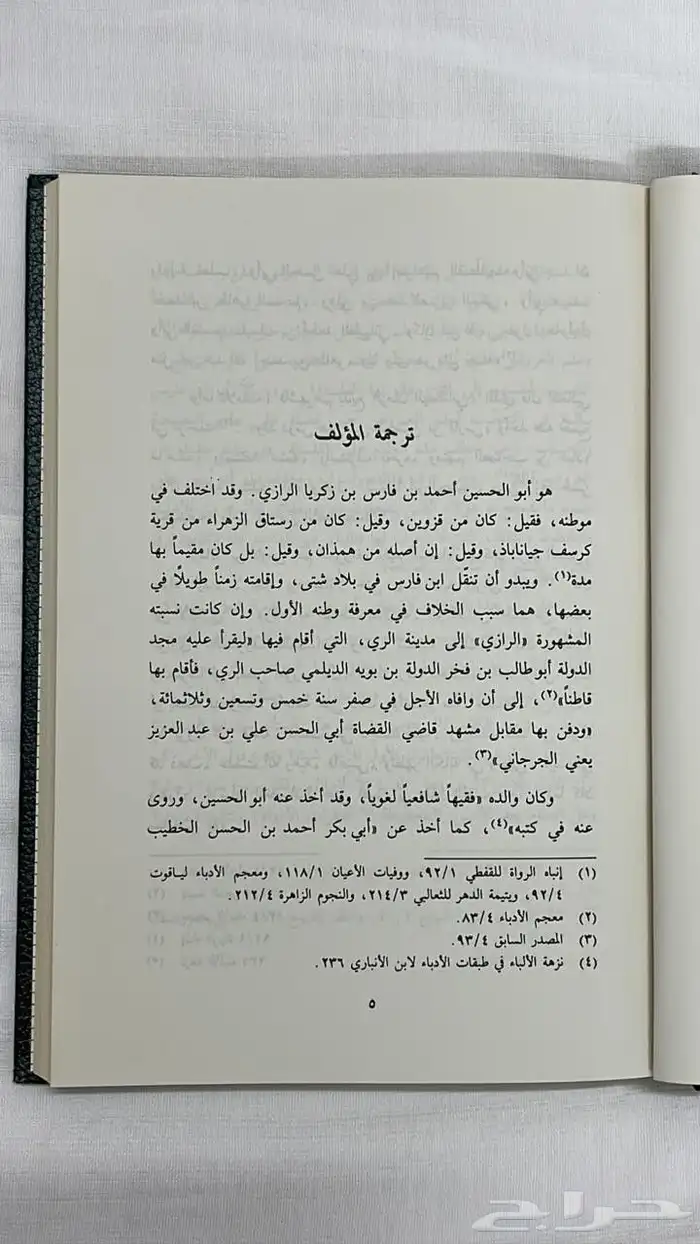 ترجمة المؤلف
هو أبو الحسين أحمد بن فارس بن زكريا الرازي. وقد اختلف في
موطنه، فقيل: كان من قزوين، وقيل: كان من رستاق الزهراء من قرية
كرسف جياناباذ، وقيل: إن أصله من همذان، وقيل: بل كان مقيماً بها
مدة(١). ويبدو أن تنقّل ابن فارس في بلاد شتى، وإقامته زمناً طويلًا في
بعضها، هما سبب الخلاف في معرفة وطنه الأول. وإن كانت نسبته
المشهورة «الرازي» إلى مدينة الري، التي أقام فيها «ليقرأ عليه مجد
الدولة أبو طالب بن فخر الدولة بن بويه الديلمي صاحب الري، فأقام بها
قاطناً»(٢)، إلى أن وافاه الأجل في صفر سنة خمس وتسعين وثلاثمائة،
«ودفن بها مقابل مشهد قاضي القضاة أبي الحسن علي بن عبد العزيز
يعني الجرجاني»(٣).
وكان والده «فقيهاً شافعياً لغوياً، وقد أخذ عنه أبو الحسين، وروى
عنه في كتبه»(٤)، كما أخذ عن «أبي بكر أحمد بن الحسن الخطيب
(١) إنباه الرواة للقفطي ٩٢/١، ووفيات الأعيان ١١٨/١، ومعجم الأدباء لياقوت
٩٢/٤، ويتيمة الدهر للثعالبي ٢١٤/٣، والنجوم الزاهرة ٢١٢/٤.
(٢) معجم الأدباء ٨٣/٤.
(٣) المصدر السابق ٩٣/٤.
(٤) نزهة الألباء في طبقات الأدباء لابن الأنباري ٢٣٦.
٥
حراج